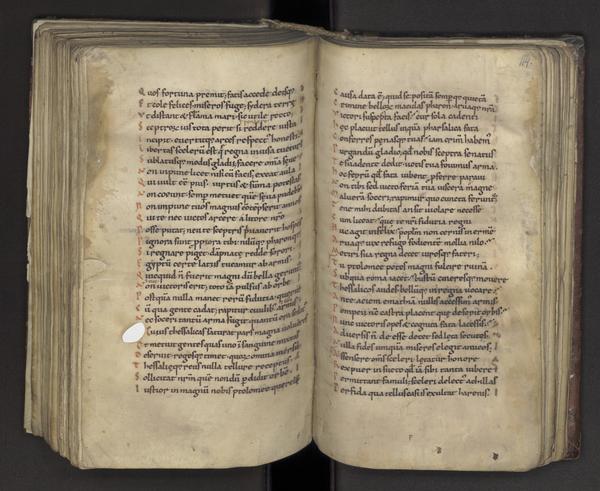 Quos fortuna premit; fatis accede deisq;
Et cole felices miseros fuge; sydera terre
Vt distant & flama mari. sic utile recto.
Sceptror; uis tota perit. si reddere iusta
Incipit. euertitq; arces respect; honesti
Libertas scelerū est. q̄ regna inuisa tuetur
Sublatusq; modus gladiis; facere omīa seue
Non inpune licet nisi cū facis; exeat aula
Qui uult eē pius. uirtus & sūma potestas
Non coeunt. semp metuet que seua pudebunt
Non impune tuos magnus cōtēpserit annos
Qui te nec uictos arcere a litore nr̄o
Posse putat; neu te sceptris priauerit hospes
Pignora sunt ppiora tibi. nilūq; pharonque
Si regnare piget. dāpnate redde sorori
Egyptū certe latiis tueamur ab armis.
Quicquid n̄ fuerit magni dū bella ger
Non uictoris erit; toto iā pulsus ab orbe
Postquā nulla manet rerū fiducia. querit
Cū qua gente cadat; rapitur ciuilib; armis
Nec soceri tantū arma fugit. fugit ora
Cuius thessalicas saturat pars magna
Et metuit gentes quas uno ī sanguine
Deseruit. regesq; timet quor; omnia mersit
Thessalieq; reus nulla tellure receptus.
Sollicitat nr̄m que nondū p̄didit orbē.
Iustior in magnū nobis ptolomee querele
104
Causa data ē; quid sepositā sempq; quietā
Crimine maculas pharon. aruaq; nr̄a
Victori suspecta facis; cur sola cadenti
Hec placuit tellus inquā pharsalica fata
Conferres penasq; tuas; iam crim̄ habem̄
Purgandū gladio; qd nobis sceptra senatus
Te suadente dedit. uotis tua fouimus arma.
Hoc ferrū qd fata iubent. pferre paraui
Non tibi sed uicto feriā tua uiscera magne
Maluerā soceri; rapimur quo cuncta ferunt̄
Tene mihi dubitas an sit uiolare necesse
Cum liceat; que te nr̄i fiducia regni
Huc agit infelix; popl̄m non cernis inermē
Aruaq; uix refugo fodientē mollia nilo;
Metiri sua regna decet uiresq; fateri;
Tu ptolomee potes magni fulcire ruinā.
Subqua roma iacet; bustū cineresq; mouere
Thessalicos audes bellūq; in regna uocare
Ante aciem emathiā nullis accessim̄ armis
Pompeii nc̄ castra placent que deserit orbis;
Nunc uictoris opes & cognita fata lacessis;
Aduersis n̄ deesse decet sed leta secutos.
Nulla fides umquā miseros elegit amicos.
Assensere om̄s sceleri; letatur honore
Rex puer insueto qd iā sibi tanta iubere
Permittant famuli; sceleri delect; achillas
Perfida qua tellus casiis harenis.